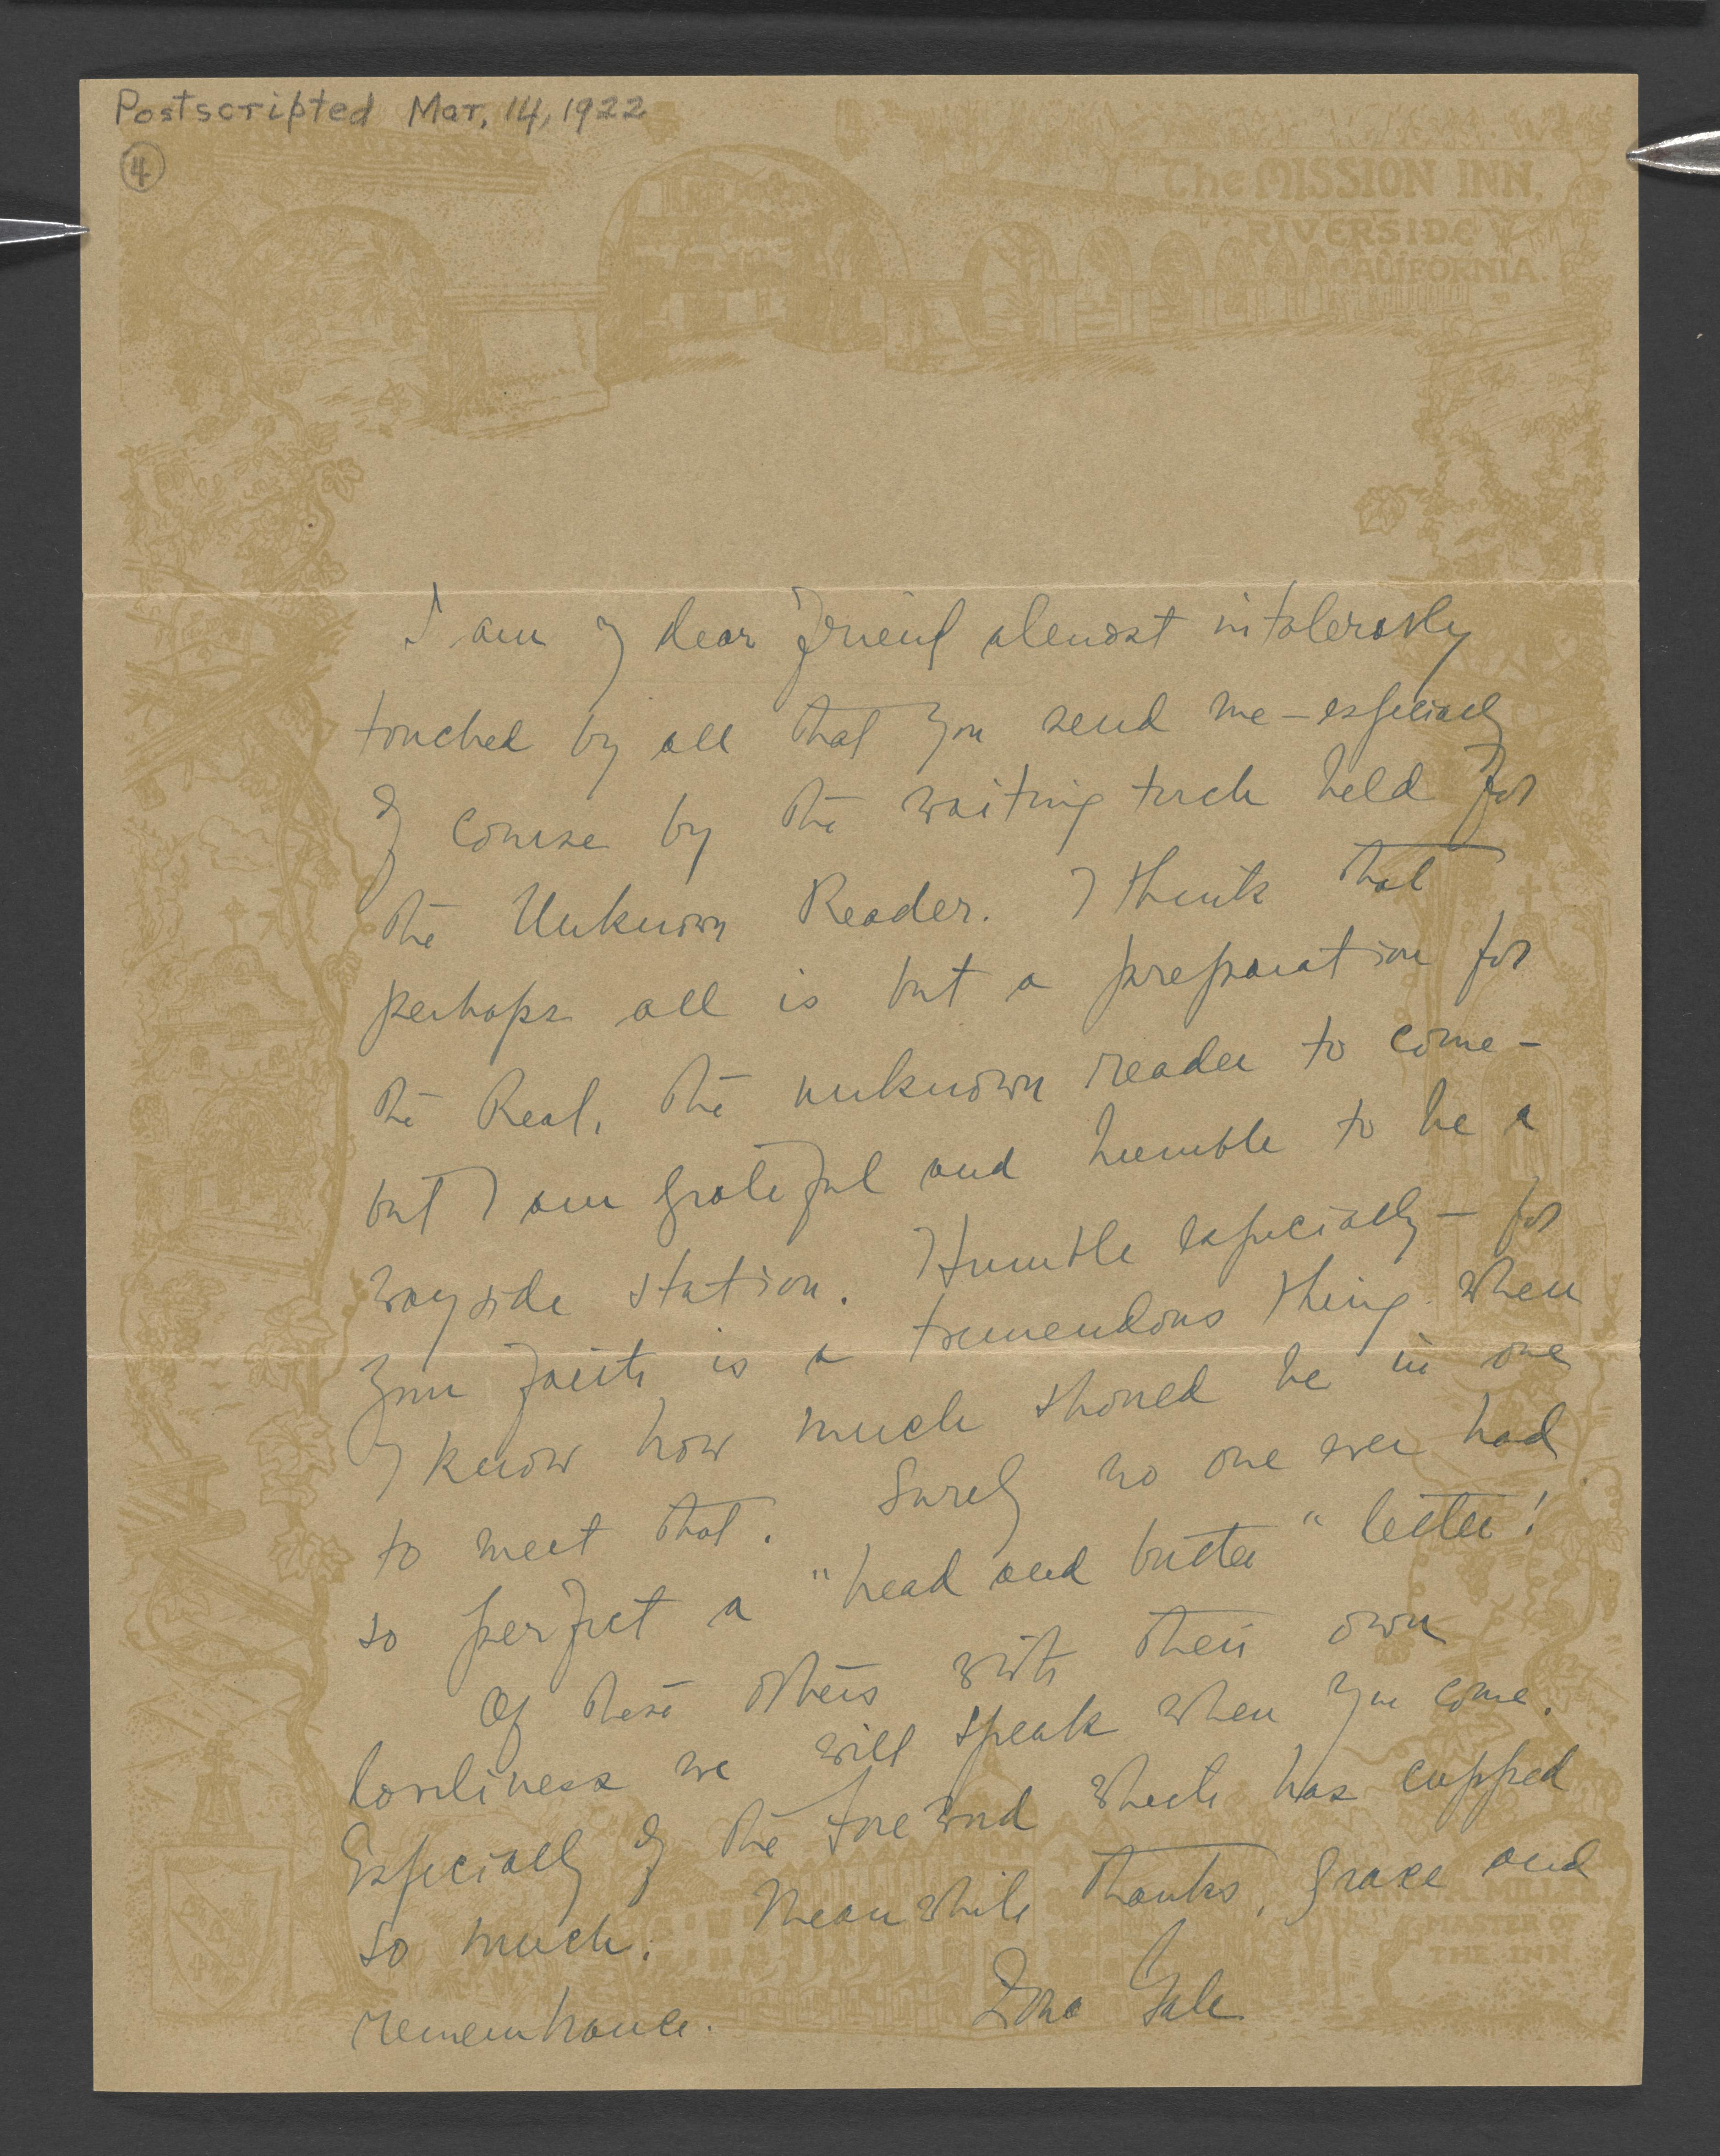 Postscripted Mar. 14, 1922
4
The MISSION INN,
RIVERSIDE
CALIFORNIA.
I am my dear friend almost intolerably
touched by all that you send me – especially
of course by the waiting torch held for
the Unknown Reader. I think that
perhaps all is but a preparation for
the Real, the unknown reader to come –
but I am grateful and humble to be a
wayside station. Humble especially – for
your faith is a tremendous thing when
I know how much should be in one
to meet that. Surely no one ever had
so perfect a "bread and butter" letter!
Of these others with their own
loveliness we will speak when you come.
Especially of the foreword which has cupped
so much. Meanwhile thanks, grace and
remembrance. Zona Gale
MASTER OF
THE INN